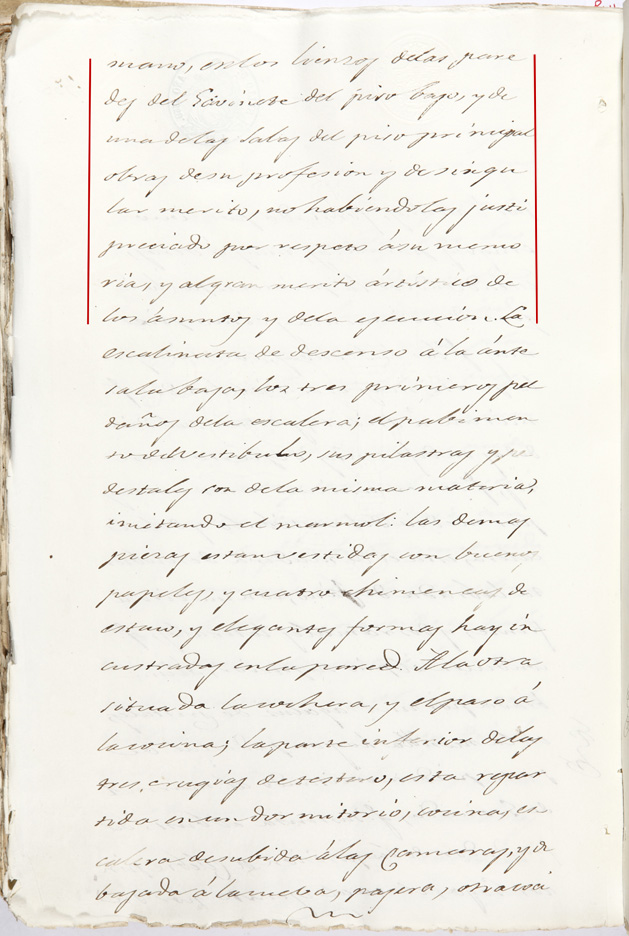 mano, en los lienzos delas pare
des del Gavinete del piso bajo, y de
una delas Salas del piso principal
obras desu profesion y de singu
lar merito, no habiendolas justi
preciado por respeto ásu memo
ria, y algran merito ártístico de
los ásuntos y dela ejecucion. La
escalinata de descenso á la ánte
sala baja, los tres primeros pel
daños dela escalera; el pabimen
to delvestibulo, sus pilastras y pe
destales son dela misma materia,
imitando el marmol: las demas
piezas estanvestidas con buenos
papeles, y cuatro chimeneas de
estuco, y elegantes formas hay in
custradas enlapared. Á la otra
situada lacochera, y elpaso á
lacocina; laparte interior delas
tres crugias detestero, esta repar
tida enun dormitorio, cocina, es
calera desubida álas Camaras, y de
bajada á lacueba, pajera, otra